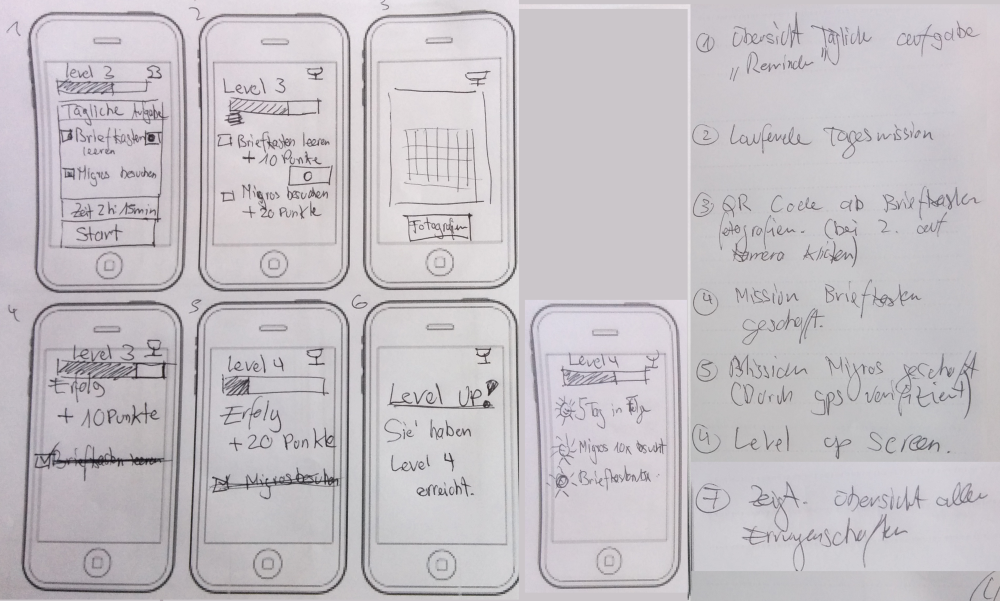 1
Level 3
Tägliche Aufgabe
Briefkasten
leeren
Migros besuchen
Zeit 2h 15min
Start
2
Level 3
Briefkasten leeren
+ 10 Punkte
Migros besuchen
+ 20 Punkte
3
Fotografieren
4
Level 3
Erfolg
+ 10 Punkte
Briefkasten leeren
5
Level 4
Erfolg
+ 20 Punkte
Migros besuchen
6
Level UP!
Sie haben
Level 4
erreicht.
Level 4
5 Tag in Folge
Migros 10x besucht
① Übersicht Täglich aufgabe
„Reminder"
② Laufende Tagesmission
③ QR Code ab Briefkasten
fotografieren. (bei 2. auf
Kamera klicken)
④ Mission Briefkasten
geschaft.
⑤ Mission Migros geschaft
(Durch gps verifiziert)
④ Level up Screen.
⑦ Zeigt Übersicht aller
Errungenschaften